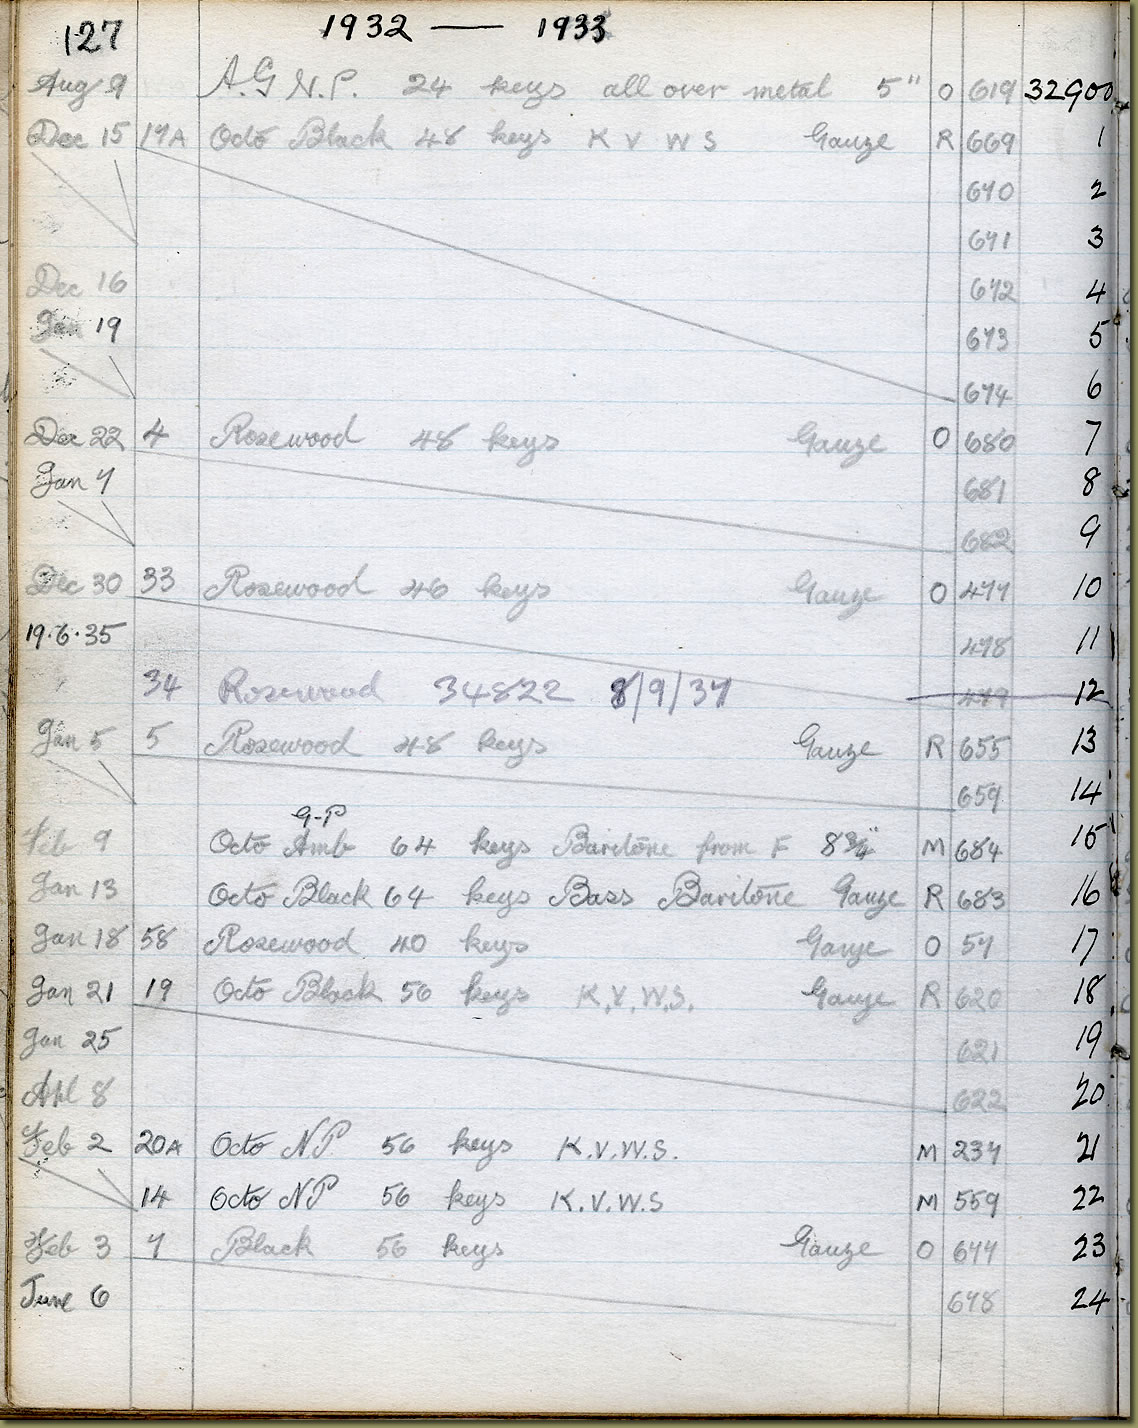 127 1932 — 1933
Aug 9 A.G N.P. 24 keys all over metal 5" O 619 32900
Dec 15 17A Octo Black 48 keys K V W S Gauze R 669 1
670 2
671 3
Dec 16 672 4
Jan 19 673 5
674 6
Dec 22 4 Rosewood 48 keys Gauze O 680 7
Jan 7 681 8
682 9
Dec 30 33 Rosewood 46 keys Gauze O 477 10
19·6·35 478 11
34 Rosewood 34822 8/9/37 479 12
Jan 5 5 Rosewood 48 keys Gauze R 655 13
659 14
G-P
Feb 9 Octo Amb 64 keys Baritone from F 8¾" M 684 15
Jan 13 Octo Black 64 keys Bass Baritone Gauze R 683 16
Jan 18 58 Rosewood 40 keys Gauze O 57 17
Jan 21 19 Octo Black 56 keys K.V.W.S. Gauze R 620 18
Jan 25 621 19
Apl 8 622 20
Feb 2 20A Octo NP 56 keys K.V.W.S. M 237 21
14 Octo NP 56 keys K.V.W.S M 559 22
Feb 3 7 Black 56 keys Gauze O 677 23
June 6 678 24